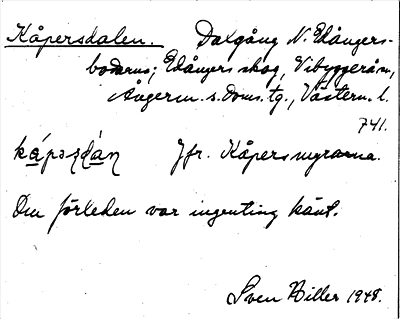 Kåpersdalen. Dalgång N. Edångers-
bodarna; Edångers skog, Vibyggerå sn,
Ångerm. s. doms. tg., Västern. l.
741.
Jfr. Kåpersmyrarna.
Om förleden var ingenting känt.
Sven Hiller 1948.